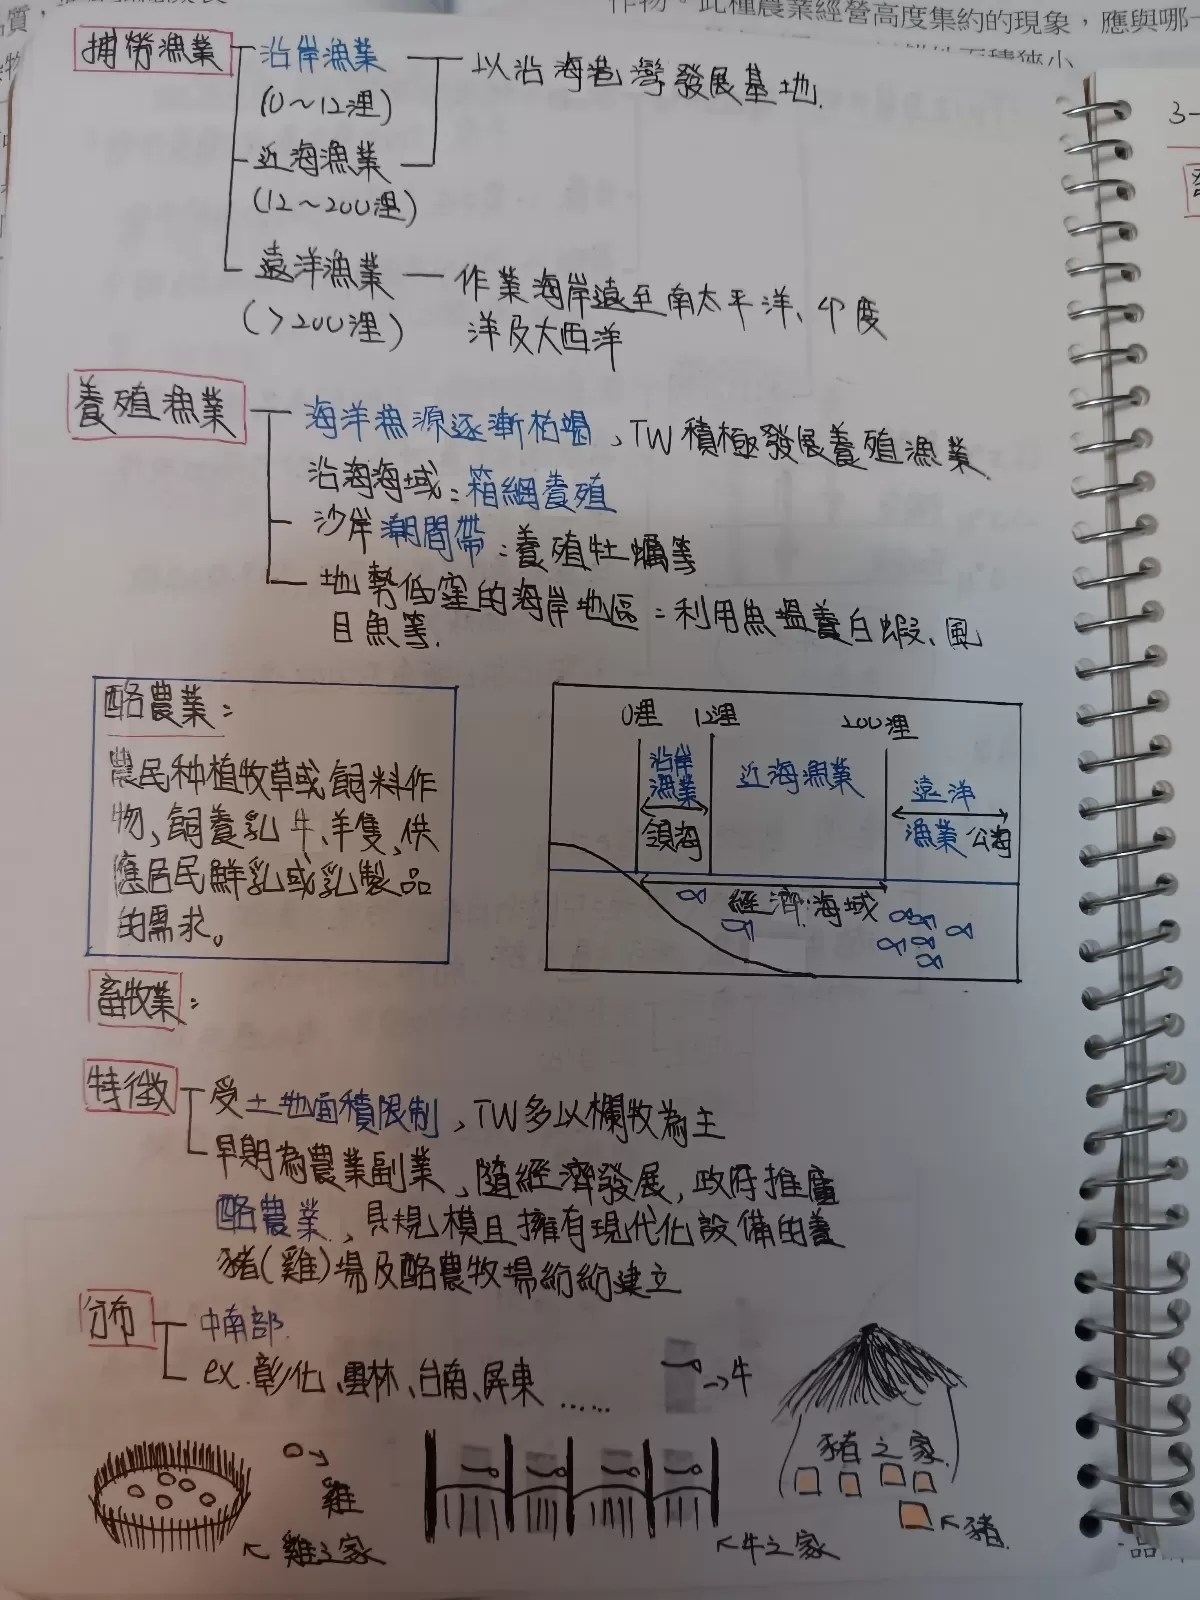 作物。此種農業經營高度集約的現象，應與哪一
捕勞漁業
沿岸漁業
(0～12浬)
以沿海港灣發展基地.
近海漁業
(12～200浬)
遠洋漁業 — 作業海岸遠至南太平洋、印度
(>200浬)
洋及大西洋
養殖漁業
海洋漁源逐漸枯竭，TW積極發展養殖漁業
沿海海域：箱網養殖
沙岸潮間帶：養殖牡蠣等
地勢低窪的海岸地區：利用魚塭養白蝦、風
目魚等.
酪農業：
農民种植牧草或飼料作
物，飼養乳牛、羊隻，供
應居民鮮乳或乳製品
的需求。
0浬 12浬 200浬
沿岸
漁業
領海
近海漁業
遠洋
漁業 公海
經濟海域
畜牧業：
特徵
受土地面積限制，TW多以欄牧為主
早期為農業副業，隨經濟發展，政府推廣
酪農業，具規模且擁有現代化設備的養
豬(雞)場及酪農牧場紛紛建立
分布
中南部.
ex.彰化、雲林、台南、屏東……
→牛
雞
雞之家
牛之家
豬之家
豬
3-